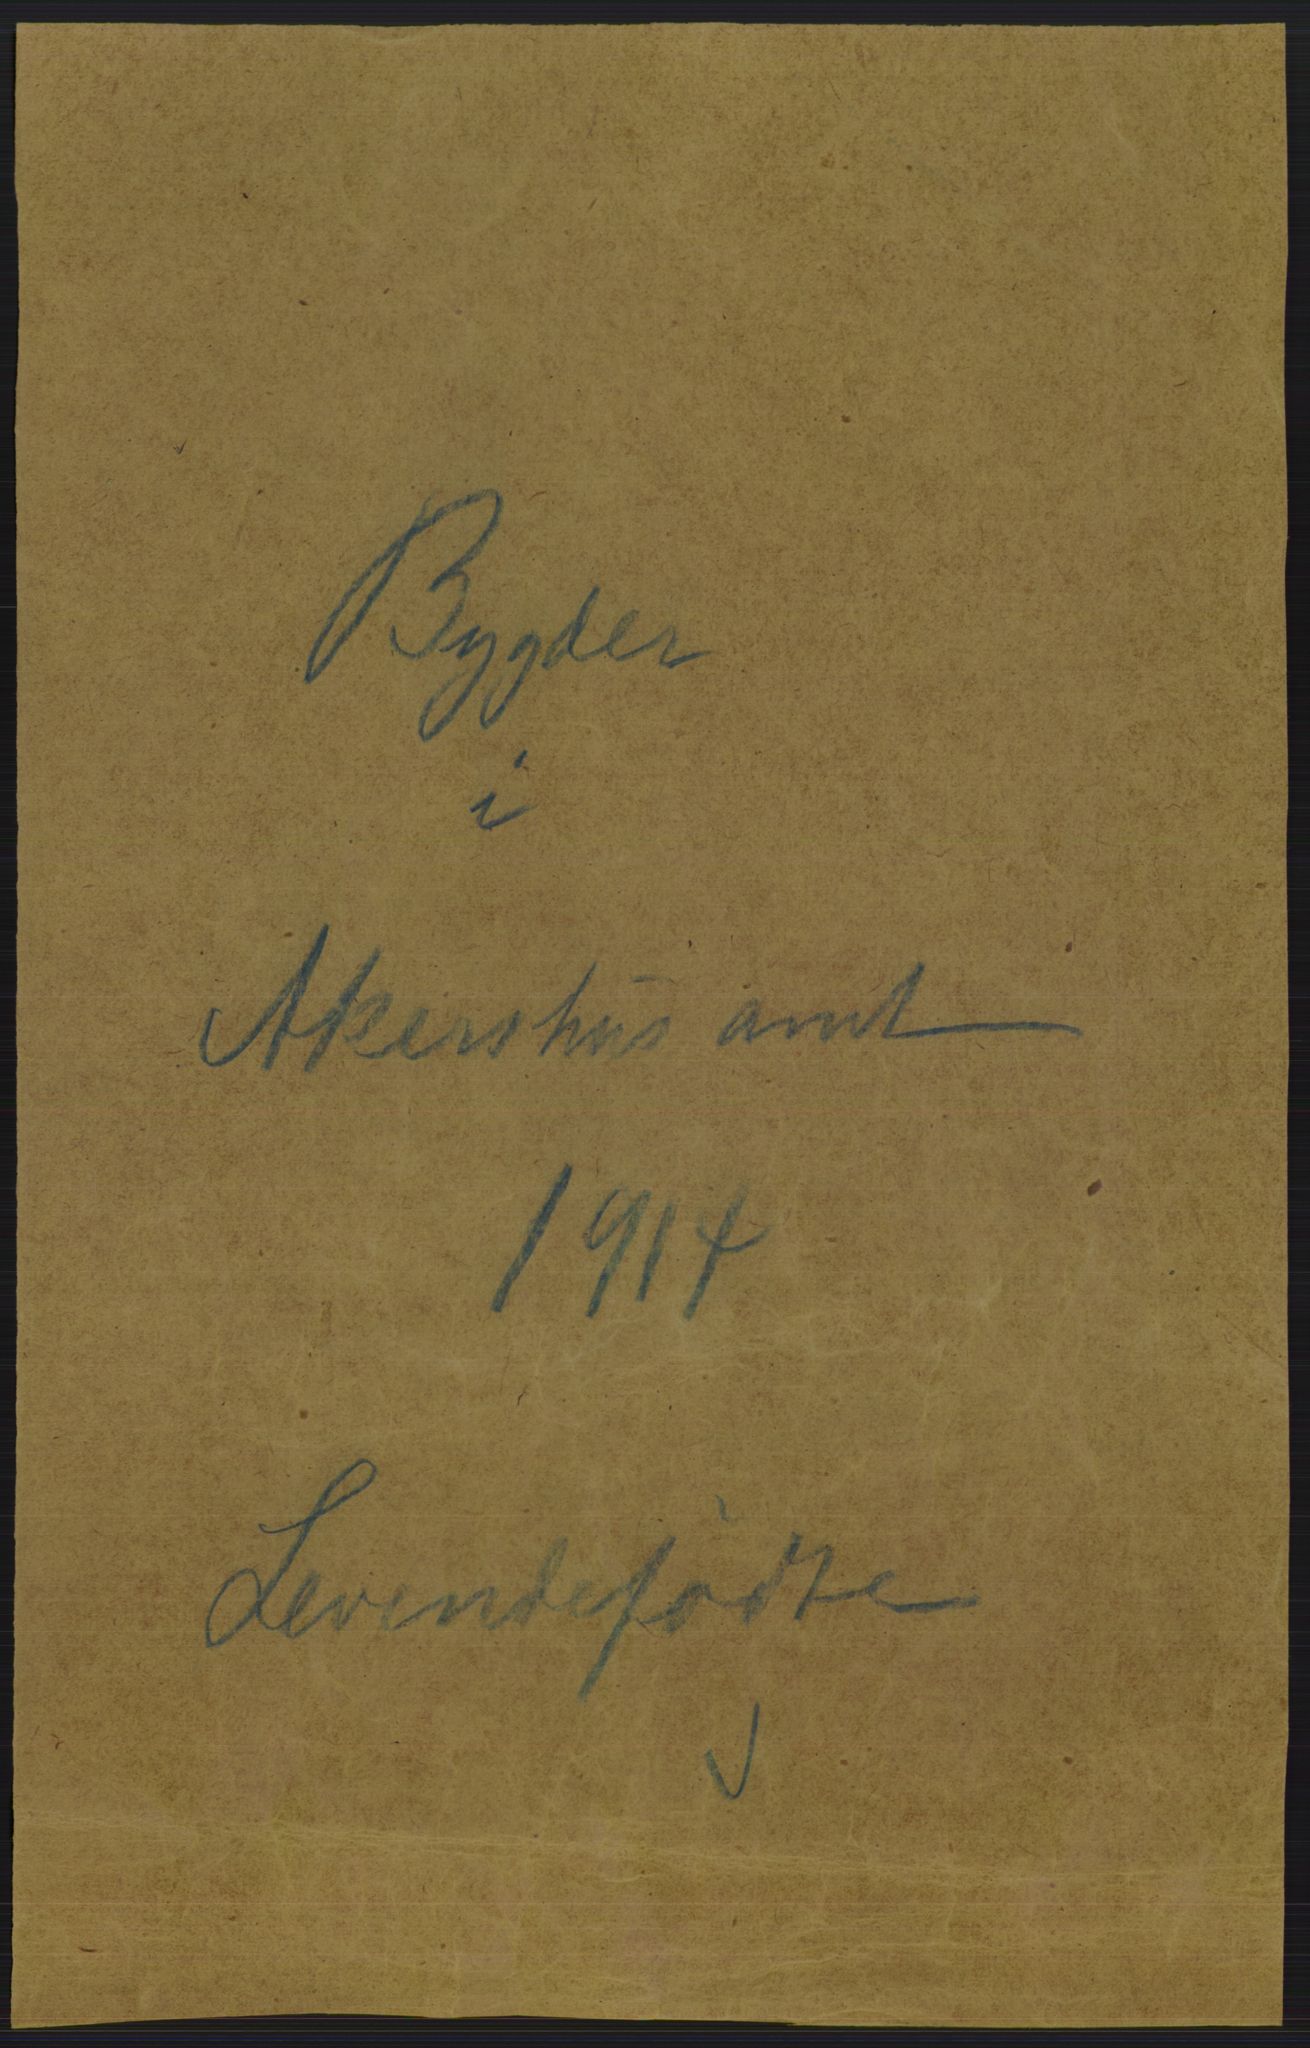 Bygder
i
Akershus amt
1914
Levendefødte